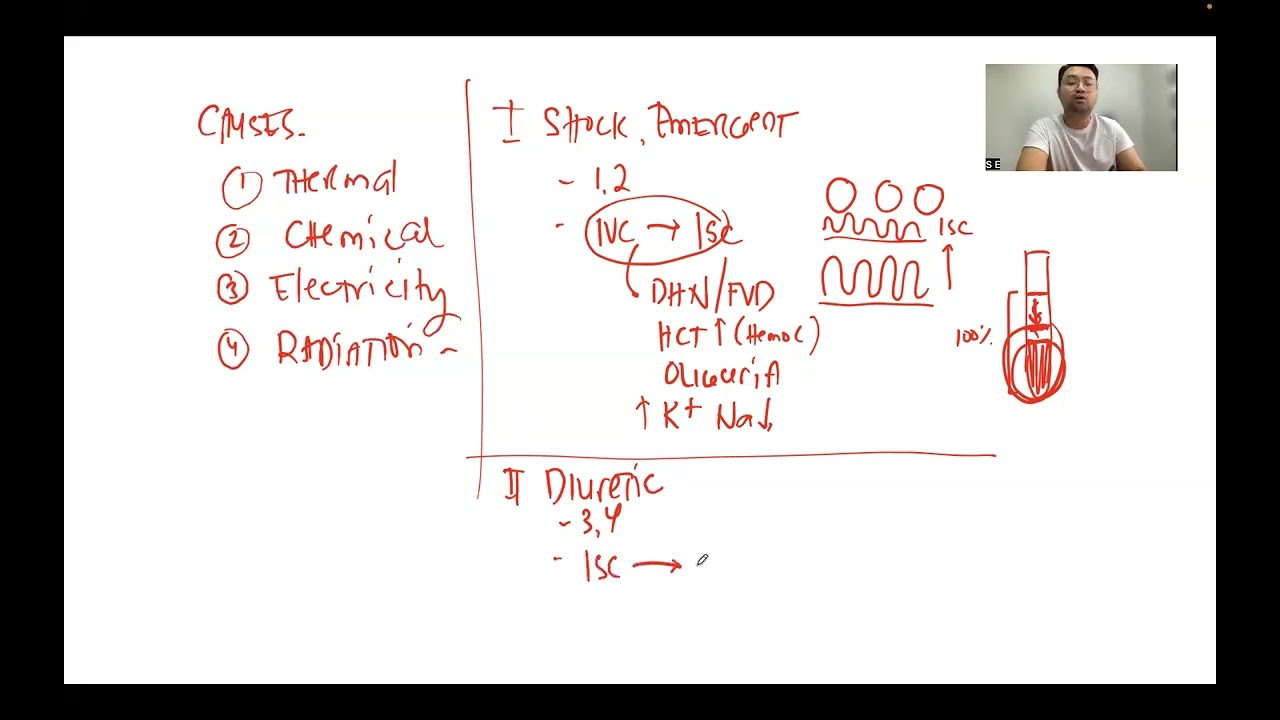 CAUSES.
① THERMAL
② CHEMICAL
③ Electricity
④ RADIATION -
I SHOCK, EMERGENT
- 1,2
- IVC → ISC
DHN/FVD
HCT ↑ (Hemoc)
OLIGURIA
↑ K+ Na↓
ISC ↑
100%
II Diuretic
- 3,4
- ISC →
S E